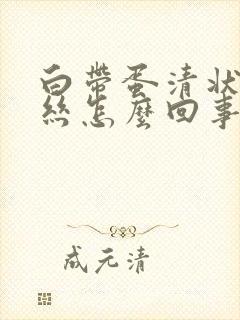 白帶蛋清狀
絲怎麼回事
成元清